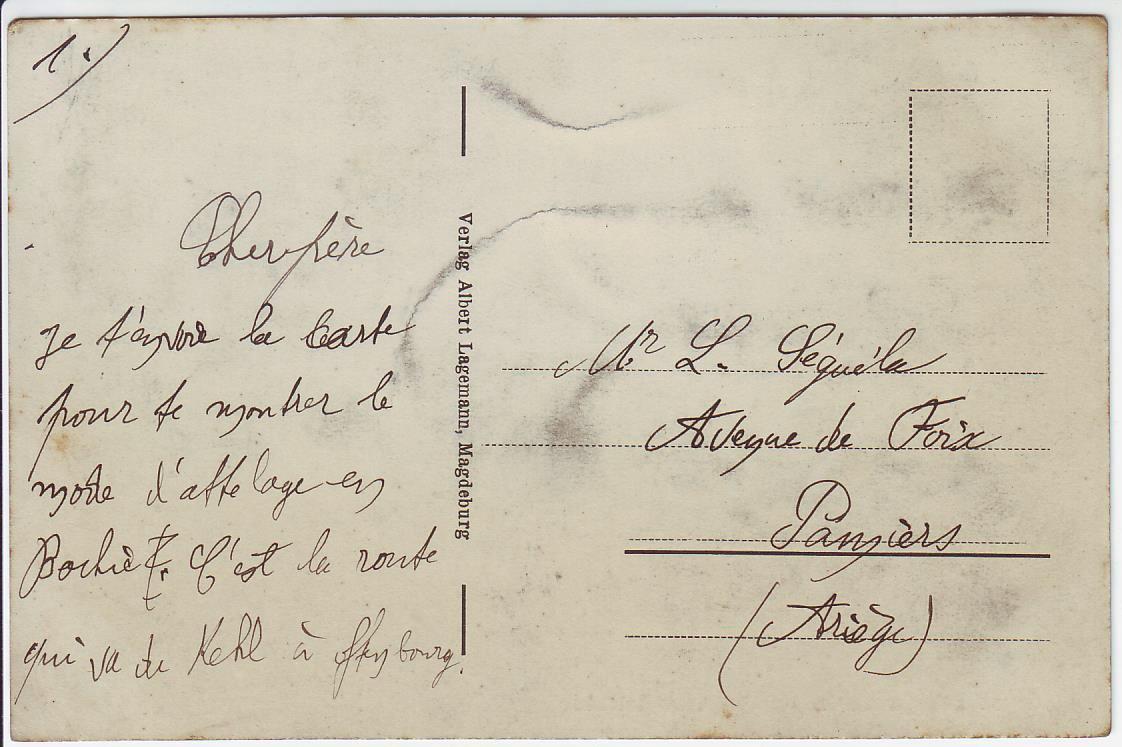 1.)
Cher père
je t'envoie la carte
pour te montrer le
mode d'attelage en
Bochie. C'est la route
qui va de Kehl à Offenbourg.
Verlag Albert Lagemann, Magdeburg
Mr L. Séguéla
Avenue de Foix
Pamiers
(Ariège)